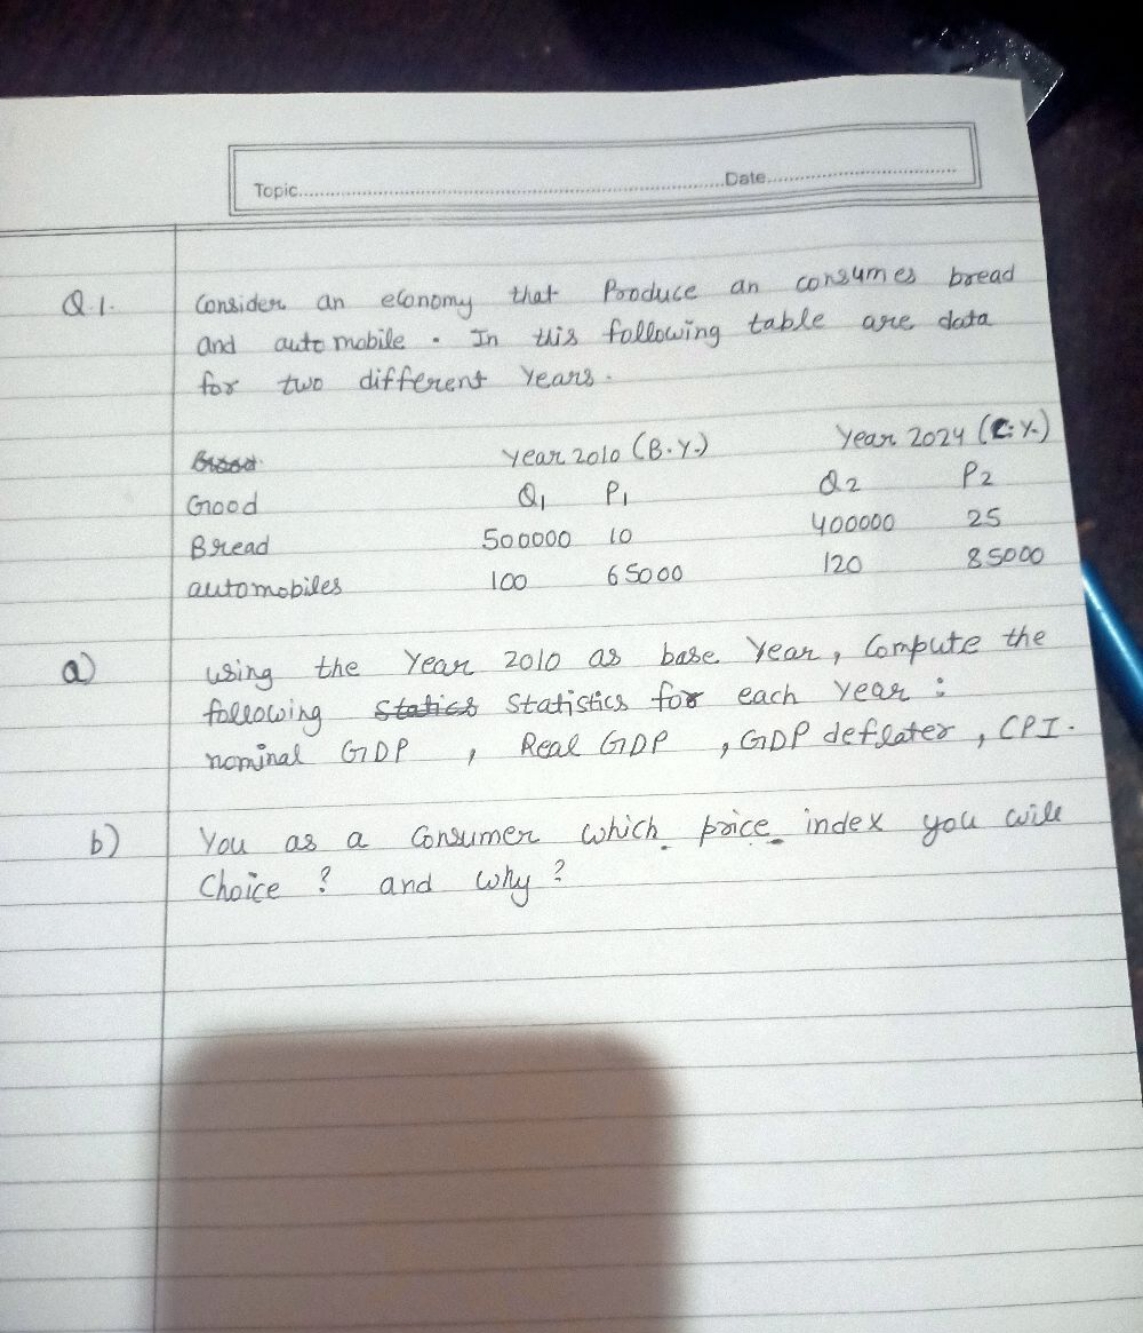 Topic..........Date..........
Q.1. Consider an economy that Produce an consumes bread
and automobile. In this following table are data
for two different Years.
Year 2010 (B.Y.) Year 2024 (C.Y.)
Good Q1 P1 Q2 P2
Bread 500000 10 400000 25
automobiles 100 65000 120 85000
a) using the Year 2010 as base Year, Compute the
following Statics Statistics for each Year :
nominal GDP , Real GDP , GDP deflater , CPI.
b) You as a Consumer which price index you will
Choice ? and why ?